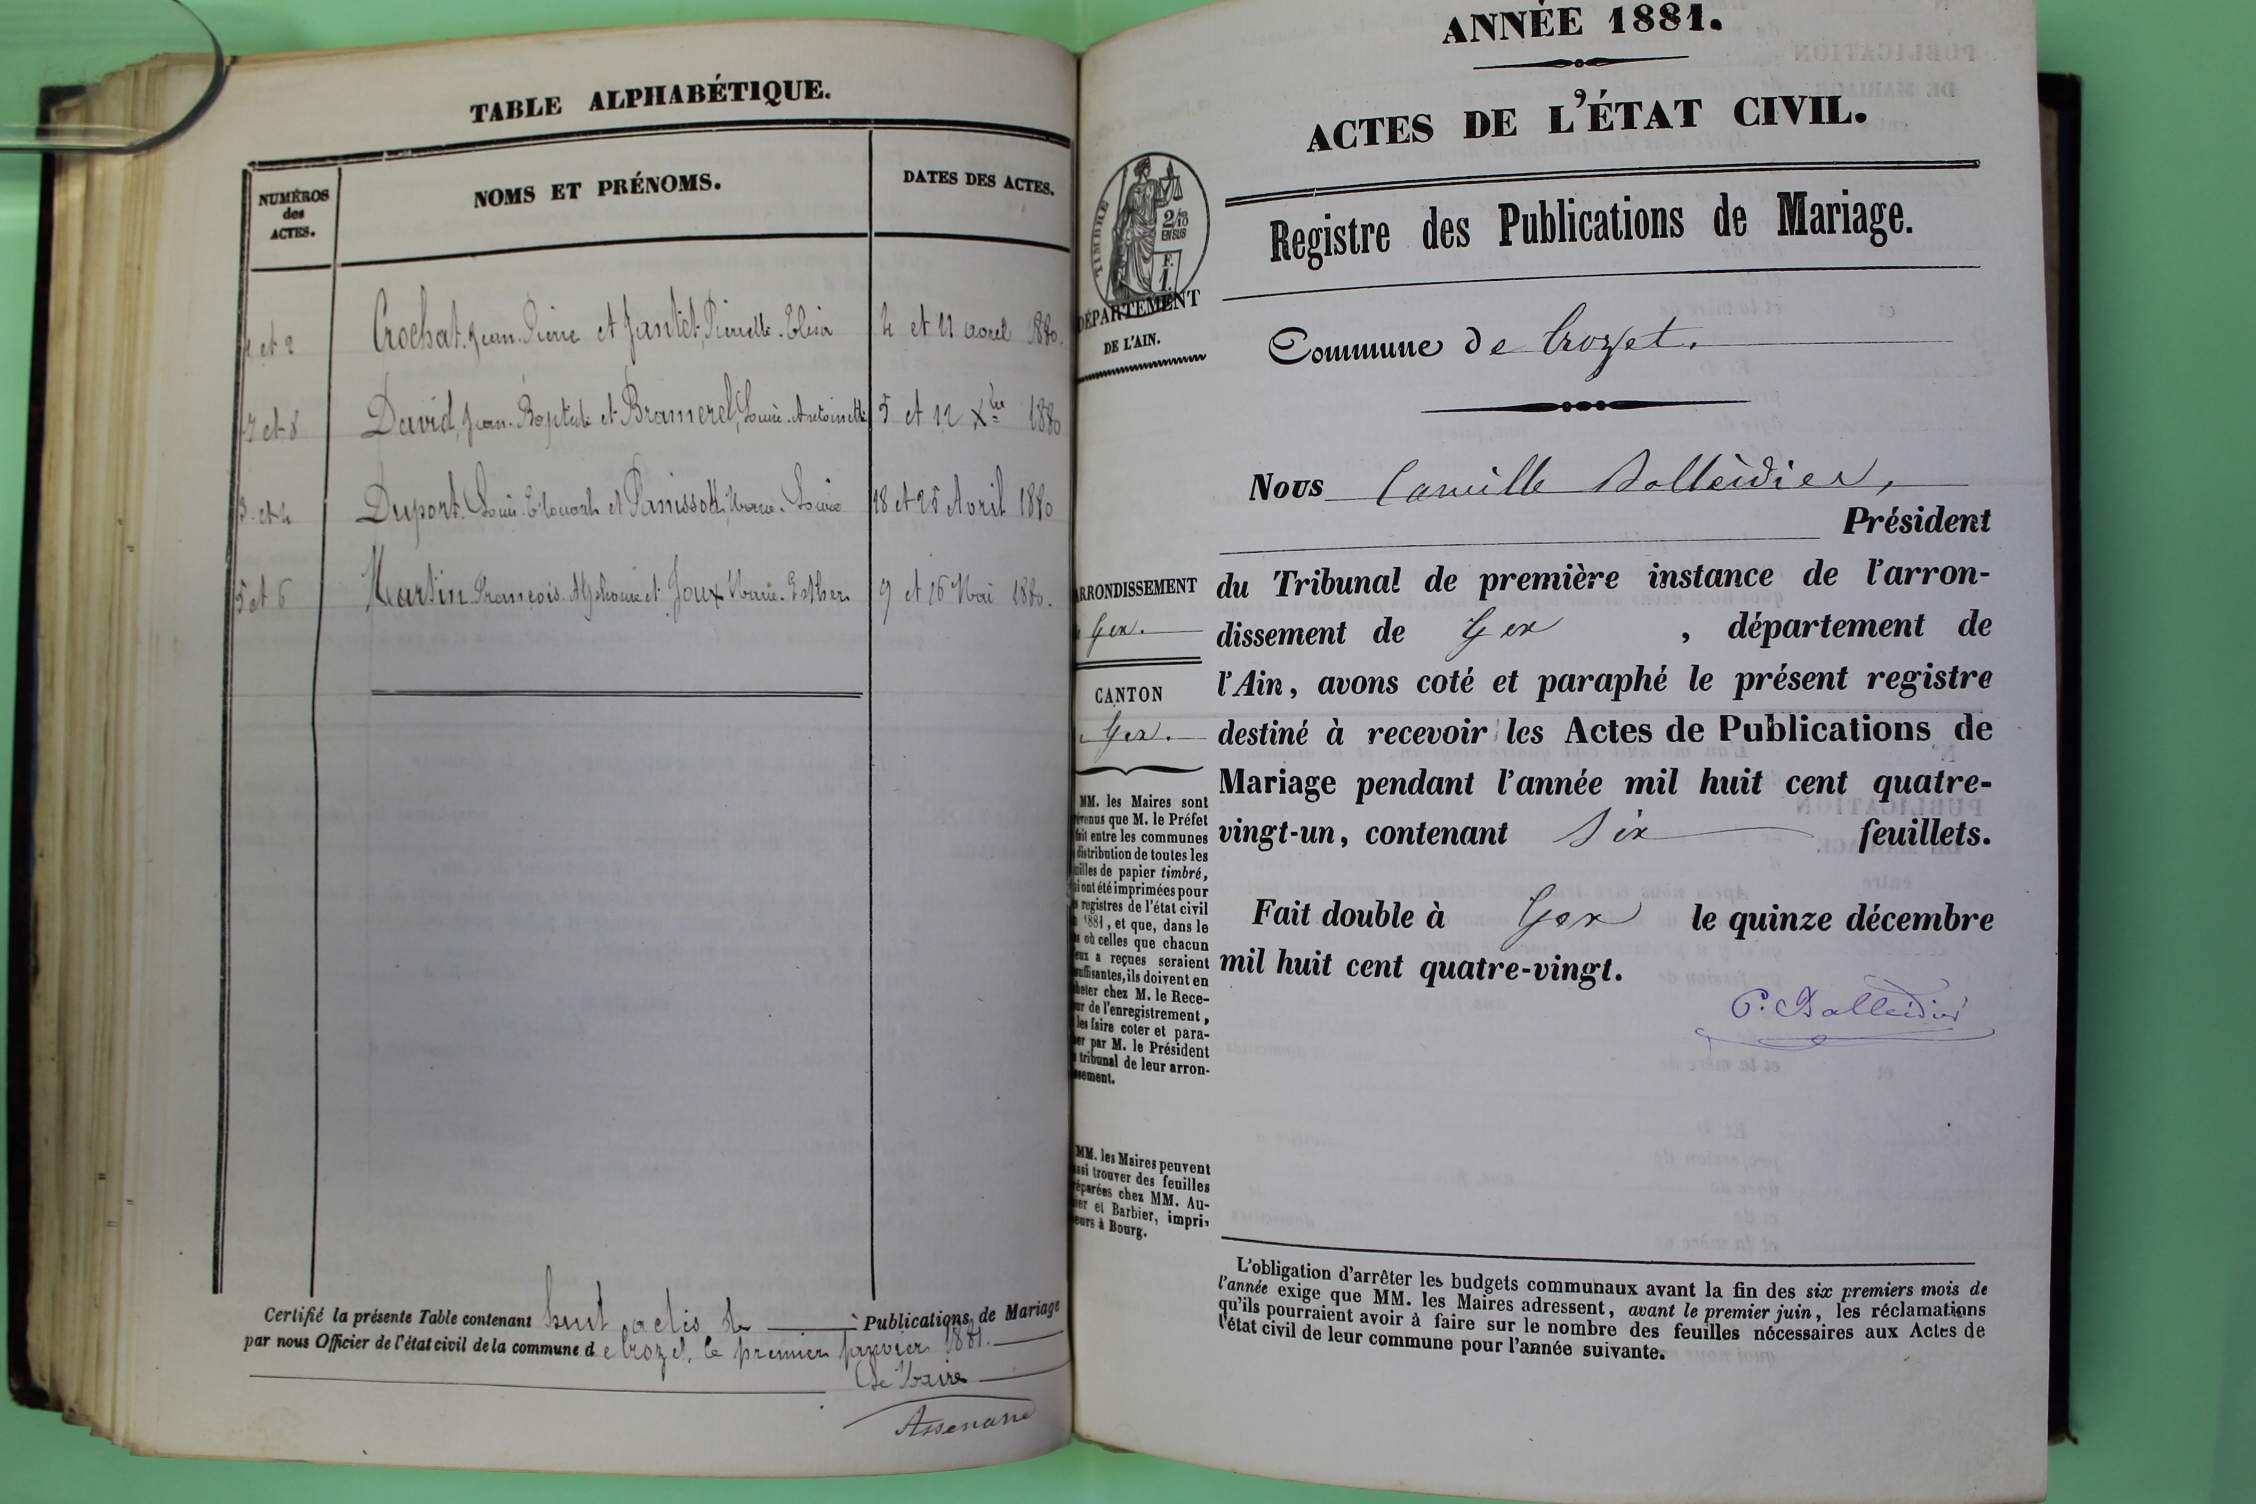 TABLE ALPHABÉTIQUE.
NUMÉROS des ACTES.
NOMS ET PRÉNOMS.
DATES DES ACTES.
1 et 2 Crochat, Jean-Pierre et Jantet, Pierrette-Elisa 4 et 11 avril 1880.
7 et 8 David, Jean-Baptiste et Bramerel, Louise-Antoinette 5 et 12 Xbre 1880
3 et 4 Duport, Louis-Edouard et Panissod, Marie-Louise 18 et 25 Avril 1880
5 et 6 Martin François-Alphonse et Joux Marie-Esther 9 et 16 Mai 1880.
Certifié la présente Table contenant huit actes de Publications de Mariage
par nous Officier de l'état civil de la commune de Crozet, le premier janvier 1881.
Le Maire
ANNÉE 1881.
ACTES DE L'ÉTAT CIVIL.
TIMBRE
2/10
EN SUS
F.
1.
Registre des Publications de Mariage.
DÉPARTEMENT
DE L'AIN.
Commune de Crozet.
Nous Camille Balleidier,
Président
ARRONDISSEMENT
Gex.
CANTON
Gex.
du Tribunal de première instance de l'arron-
dissement de Gex, département de
l'Ain, avons coté et paraphé le présent registre
destiné à recevoir les Actes de Publications de
Mariage pendant l'année mil huit cent quatre-
vingt-un, contenant six feuillets.
Fait double à Gex le quinze décembre
mil huit cent quatre-vingt.
C. Balleidier
MM. les Maires sont
venus que M. le Préfet
fait entre les communes
distribution de toutes les
illes de papier timbré,
i ont été imprimées pour
s registres de l'état civil
1881, et que, dans le
s où celles que chacun
eux a reçues seraient
suffisantes, ils doivent en
heter chez M. le Rece-
ur de l'enregistrement,
les faire coter et para-
er par M. le Président
tribunal de leur arron-
ssement.
MM. les Maires peuvent
ssi trouver des feuilles
éparées chez MM. Au-
ier et Barbier, impri-
eurs à Bourg.
L'obligation d'arrêter les budgets communaux avant la fin des six premiers mois de
l'année exige que MM. les Maires adressent, avant le premier juin, les réclamations
qu'ils pourraient avoir à faire sur le nombre des feuilles nécessaires aux Actes de
l'état civil de leur commune pour l'année suivante.